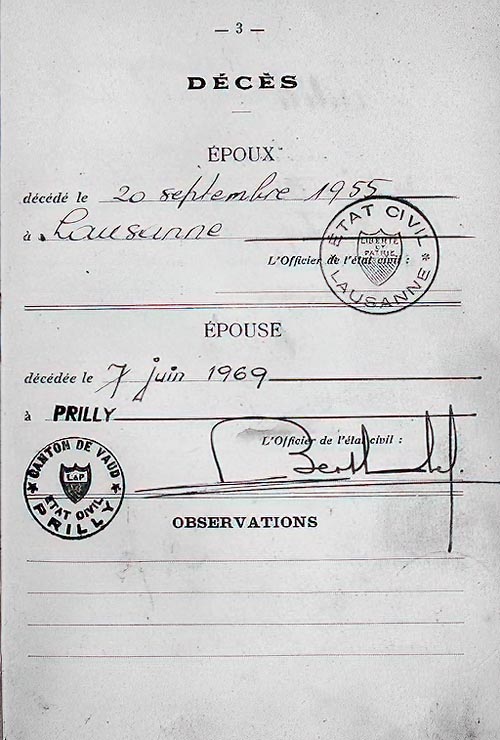 — 3 —
DÉCÈS
ÉPOUX
décédé le 20 septembre 1955
à Lausanne
ÉTAT CIVIL
LIBERTÉ
ET
PATRIE
LAUSANNE
L'Officier de l'état civil :
ÉPOUSE
décédée le 7 juin 1969
à PRILLY
L'Officier de l'état civil :
CANTON DE VAUD
L&P
ETAT CIVIL
PRILLY
OBSERVATIONS